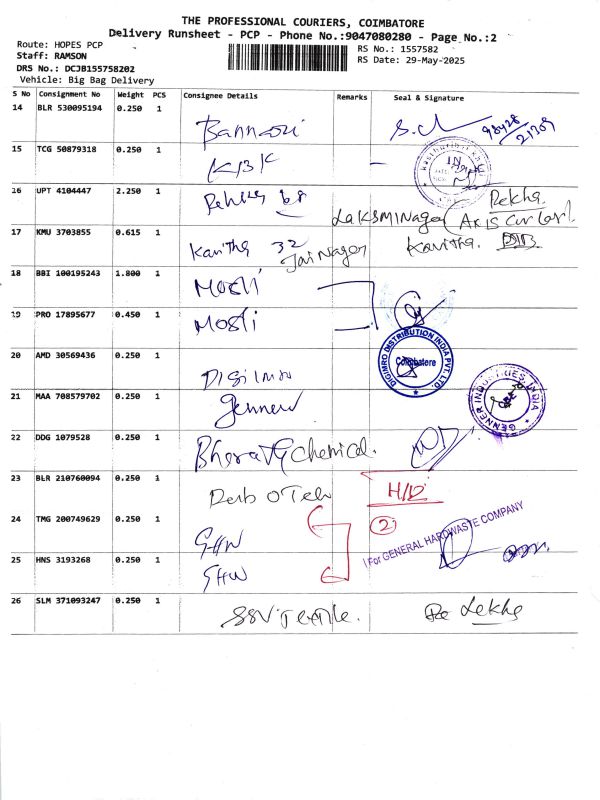 THE PROFESSIONAL COURIERS, COIMBATORE
Delivery Runsheet - PCP - Phone No.:9047080280 - Page No.:2
Route: HOPES PCP
RS No.: 1557582
Staff: RAMSON
RS Date: 29-May-2025
DRS No.: DCJB155758202
Vehicle: Big Bag Delivery
S No Consignment No Weight PCS Consignee Details Remarks Seal & Signature
14 BLR 530095194 0.250 1 Bannari 98428
21709
15 TCG 50879318 0.250 1 KBK
16 UPT 4104447 2.250 1 Rekha Rekha
LaksmiNagar Axis
17 KMU 3703855 0.615 1 Kavitha 32 Kavitha.
Jai Nagar
18 BBI 100195243 1.800 1 Mosli
19 PRO 17895677 0.450 1 Mosli
DIGIMRO DISTRIBUTION INDIA PVT. LTD.
Coimbatore
20 AMD 30569436 0.250 1 Digimro
21 MAA 708579702 0.250 1 Genner
GENNER INDUSTRIES, INDIA
22 DDG 1079528 0.250 1 Bharat Chemical.
23 BLR 210760094 0.250 1 H/D
24 TMG 200749629 0.250 1 GHW 2
For GENERAL HARDWASTE COMPANY
25 HNS 3193268 0.250 1 GHW
26 SLM 371093247 0.250 1 SSV Textile. Lekha